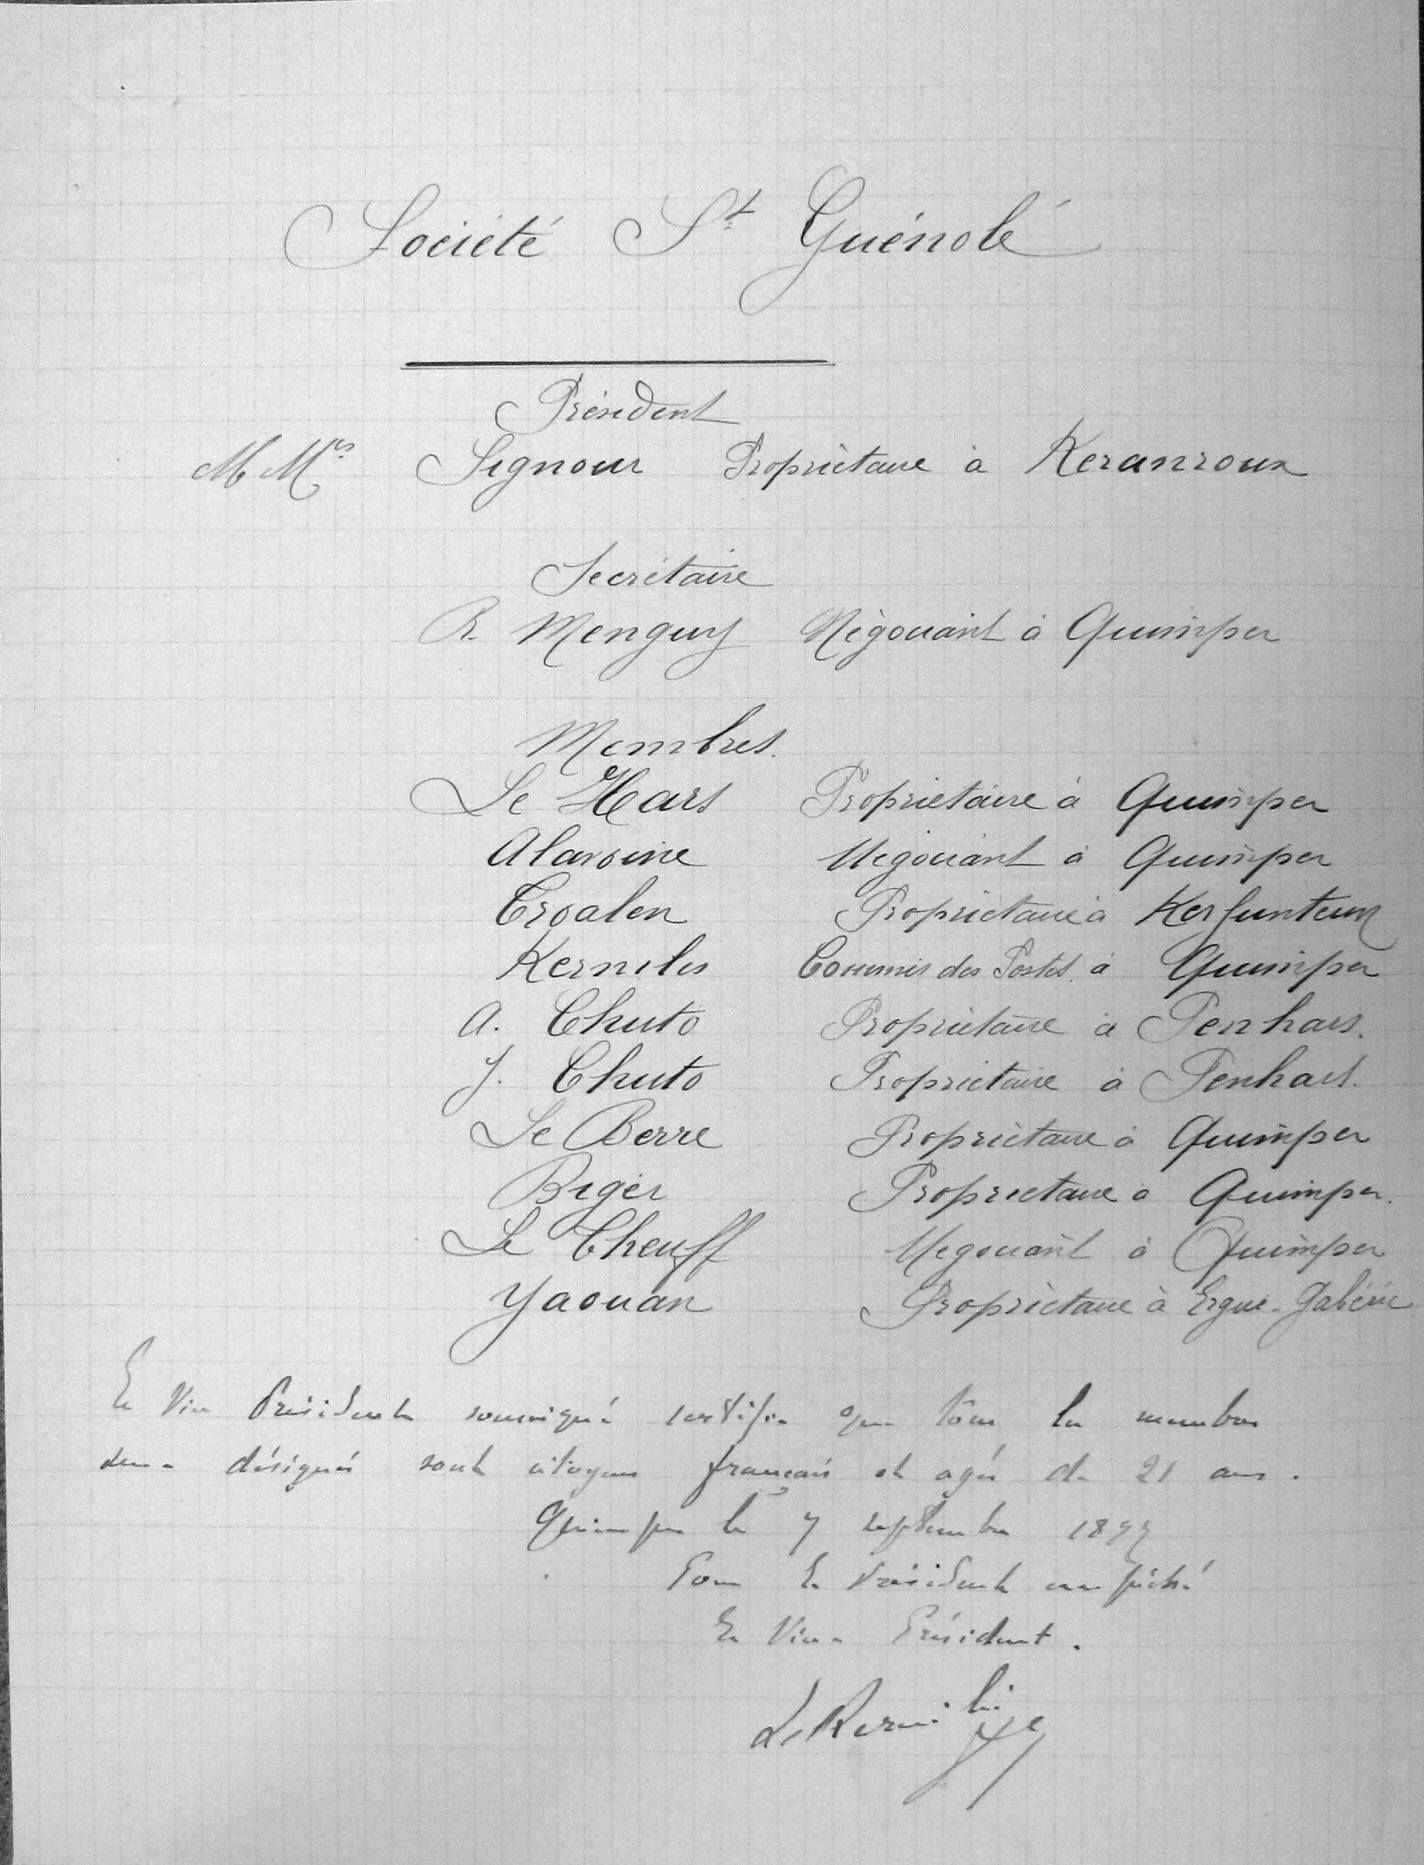 Société St Guénolé
Président
MMrs Signour Propriétaire à Keranroux
Secrétaire
R. Menguy Négociant à Quimper
Membres.
Le Hars Propriétaire à Quimper
Alavoine Négociant à Quimper
Croalen Propriétaire à Kerfunteun
Kernilis Commis des Postes à Quimper
A. Chuto Propriétaire à Penhars.
J. Chuto Propriétaire à Penhars.
Le Berre Propriétaire à Quimper
Biger Propriétaire à Quimper.
Le Cheuff Négociant à Quimper
Yaouan Propriétaire à Ergué-Gabéric
Le Vice Président soussigné certifie que tous les membres
désignés sont citoyens français et agés de 21 ans.
Quimper le 7 septembre
Pour le Président empêché
Le Vice-Président.